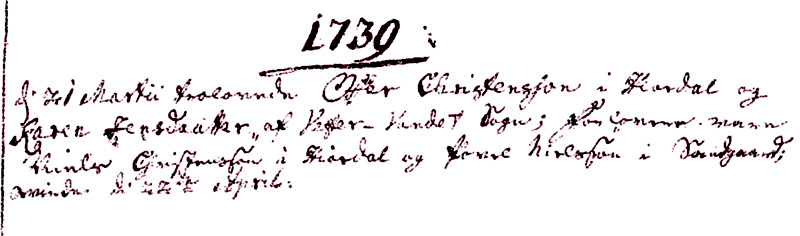 1739
d: 21 Martii trolovede Offer Christensson i Hiordal og
Karen Jensdaatter, af Vester-Vandet Sogn; Forlovere vare
Niels Christensson i Hiordal og Povel Nielsson i Sandgaard;
d: 22 April: